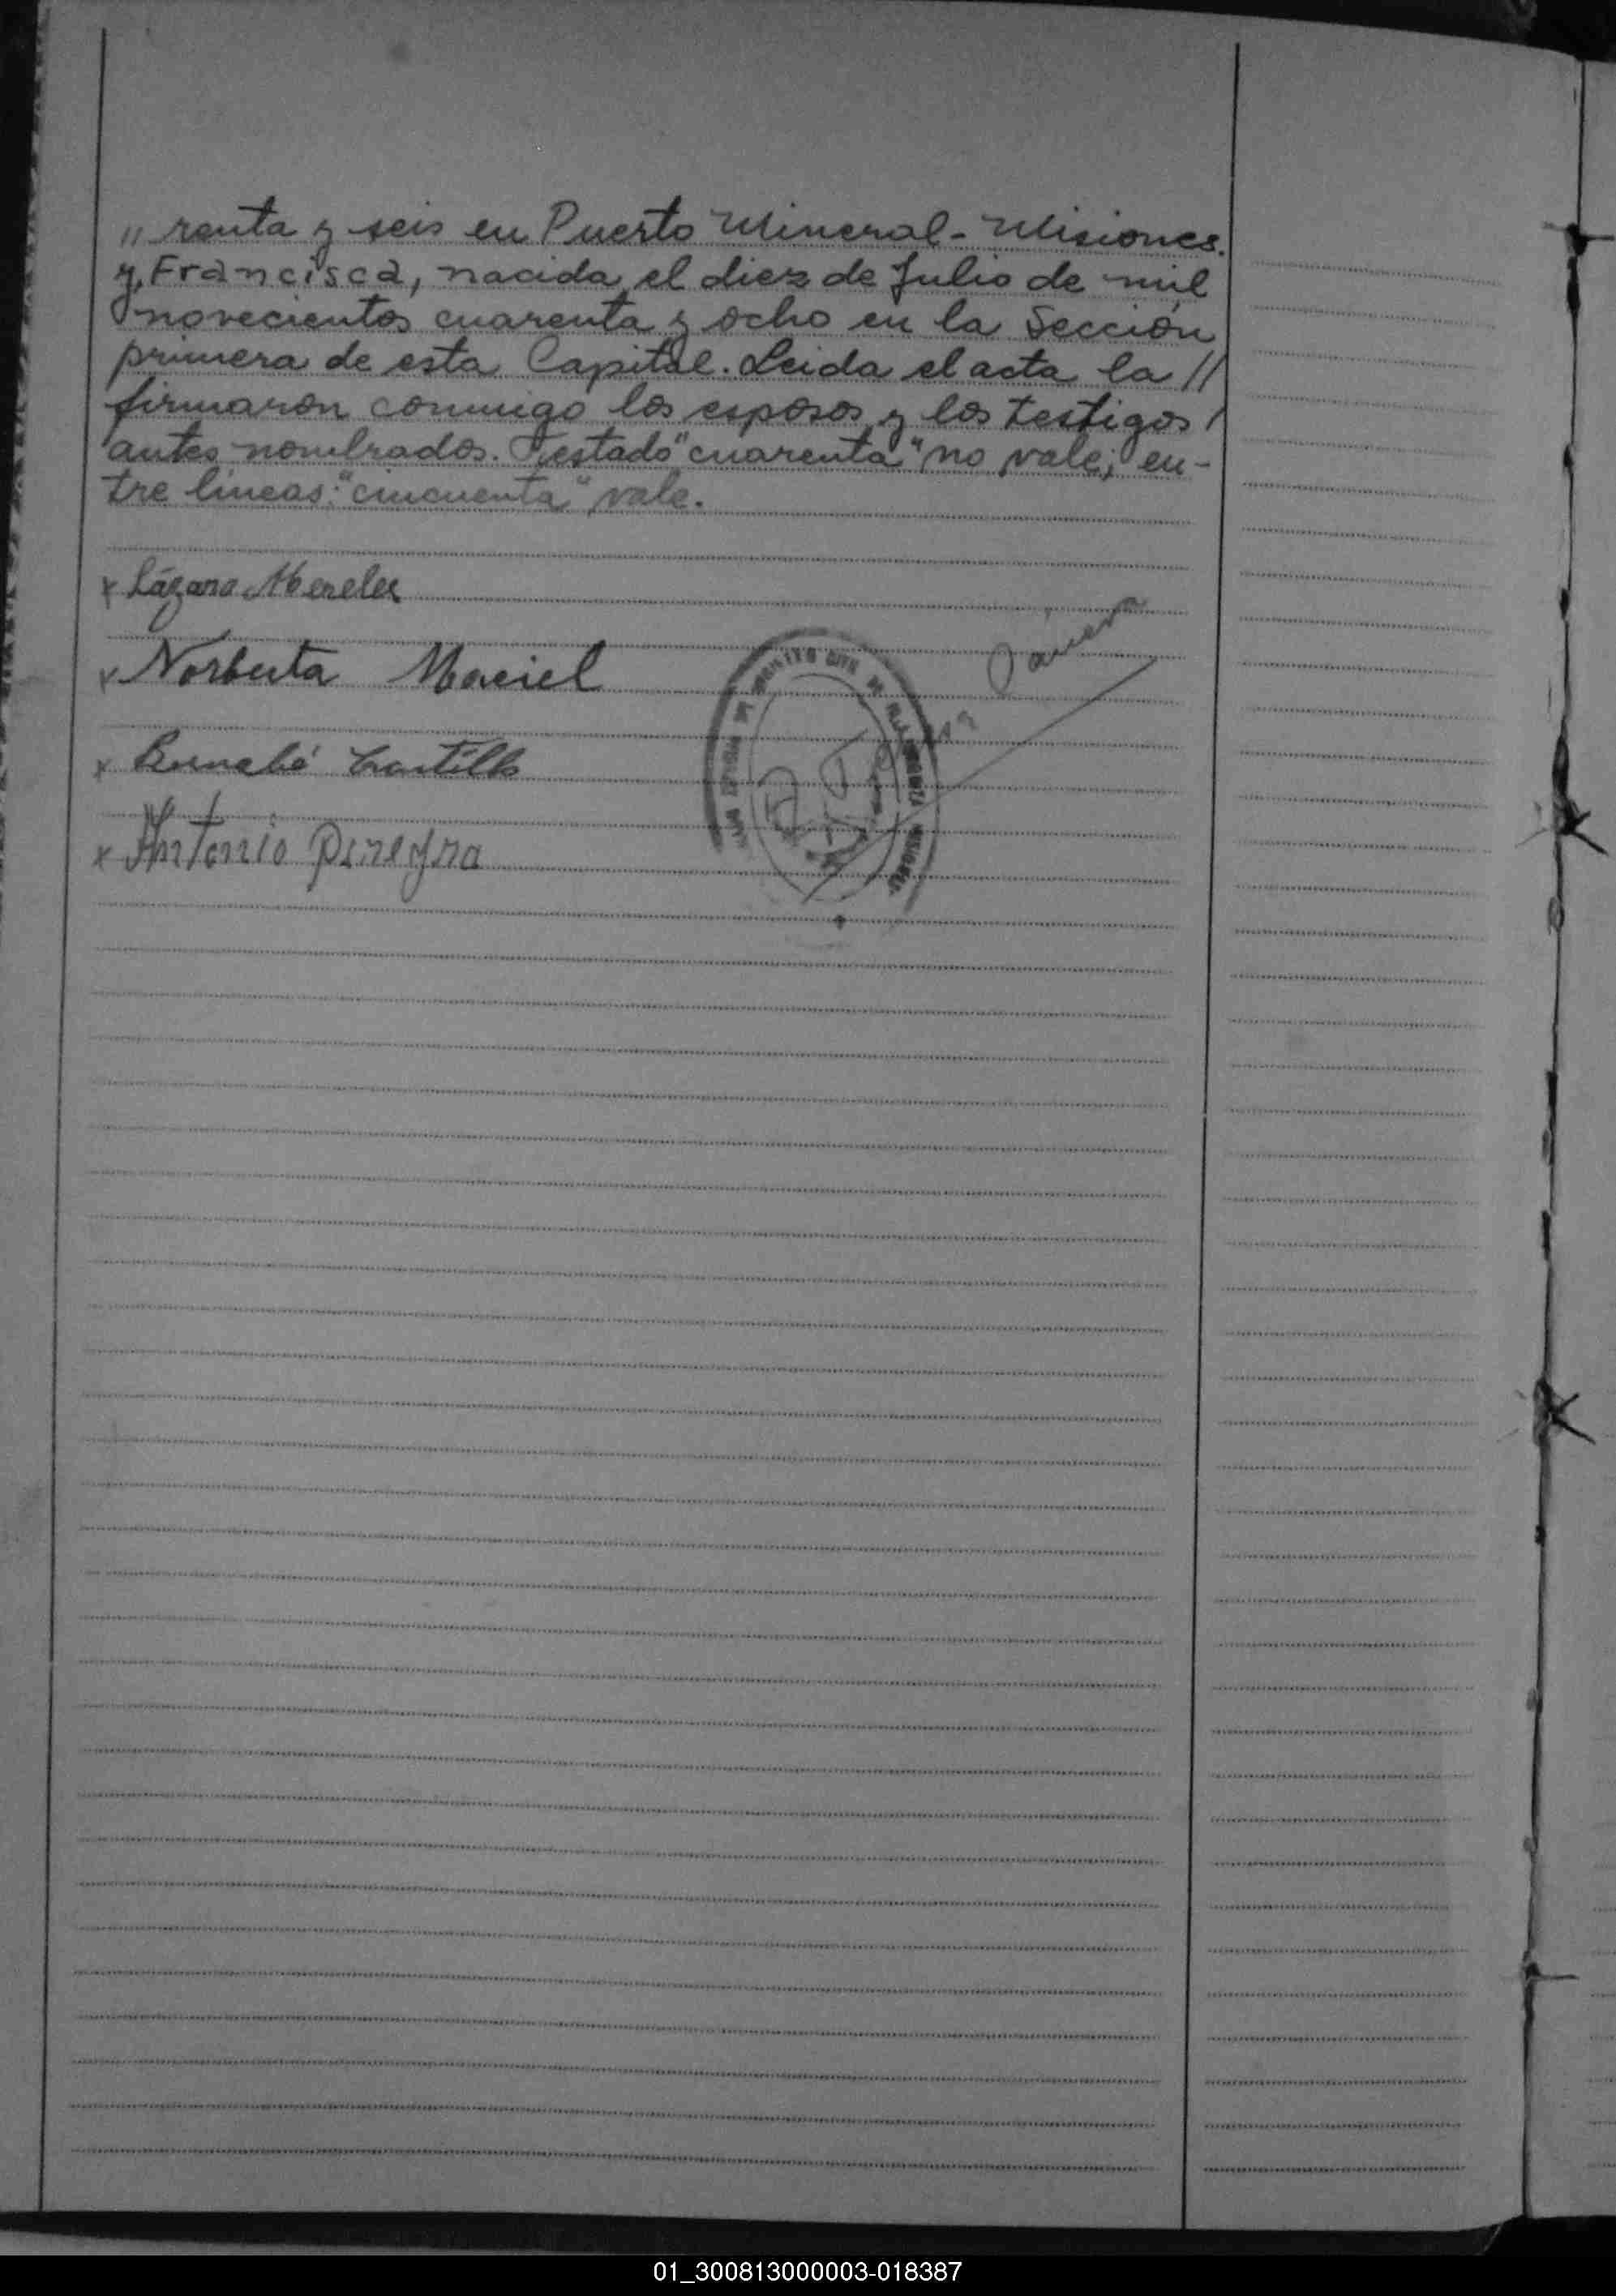 " renta y seis en Puerto Mineral - Misiones.
y, Francisca, nacida el diez de Julio de mil
novecientos cuarenta y ocho en la Sección
primera de esta Capital. Leida el acta la //
firmaron conmigo los esposos y los testigos /
antes nombrados. Testado "cuarenta" no vale; en-
tre lineas: "cincuenta" vale.
x Lázaro Mereles
x Norberta Maciel
x Bernabé Castillo
x Antonio
01_300813000003-018387